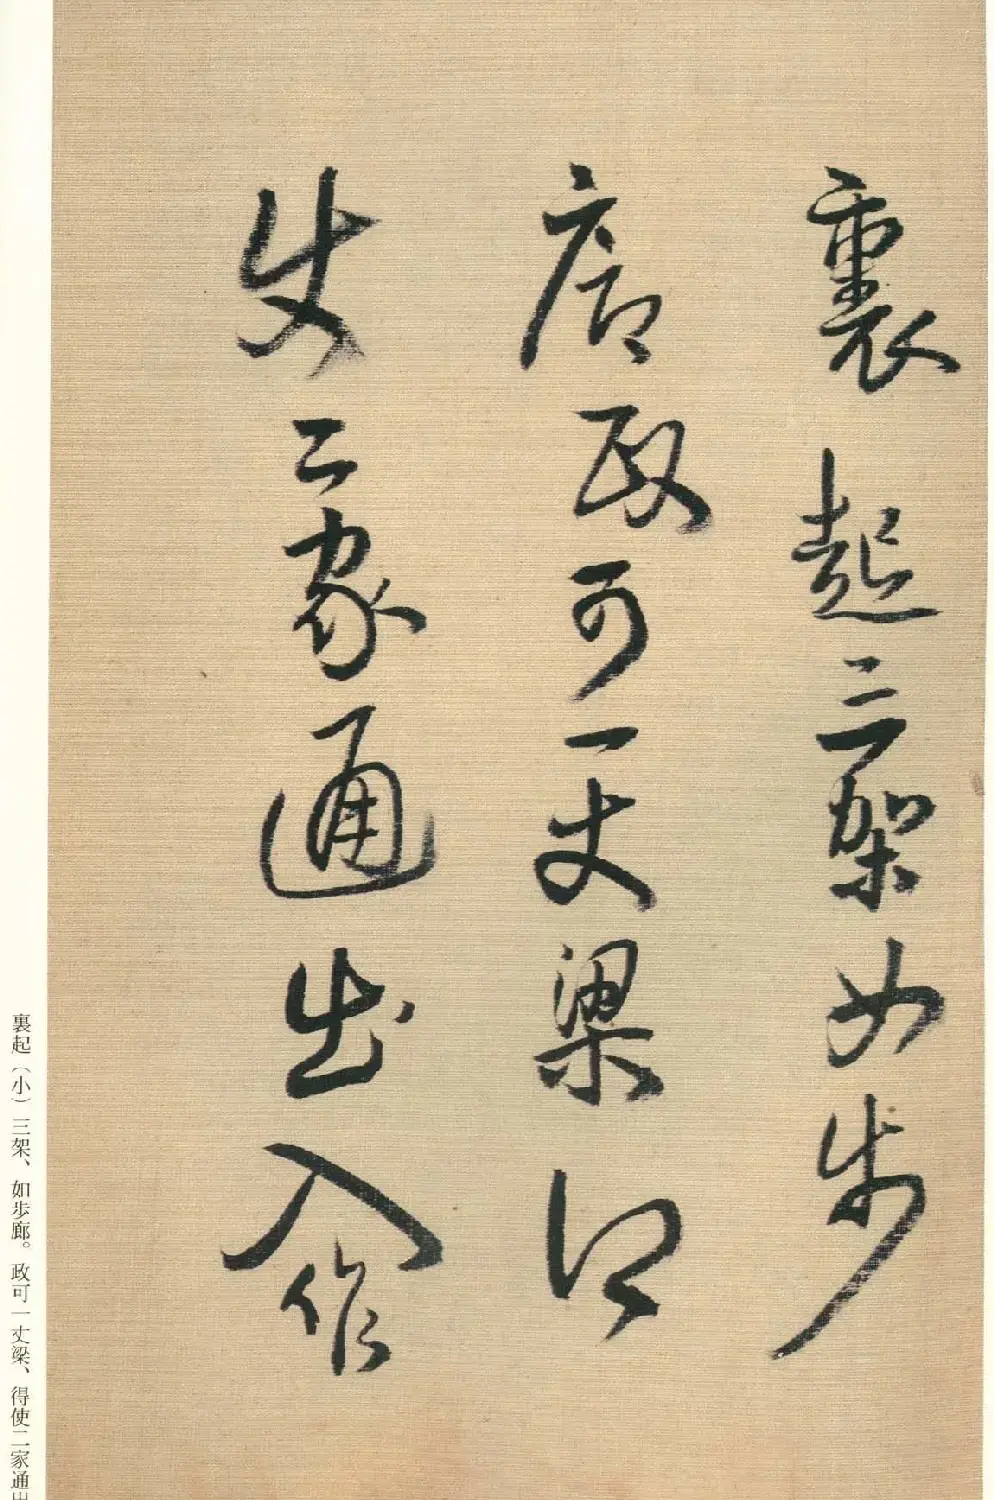 裏起三架如步
廊政可一丈梁得
使二家通出入作
裏起（小）三架、如步廊。政可一丈梁、得使二家通出